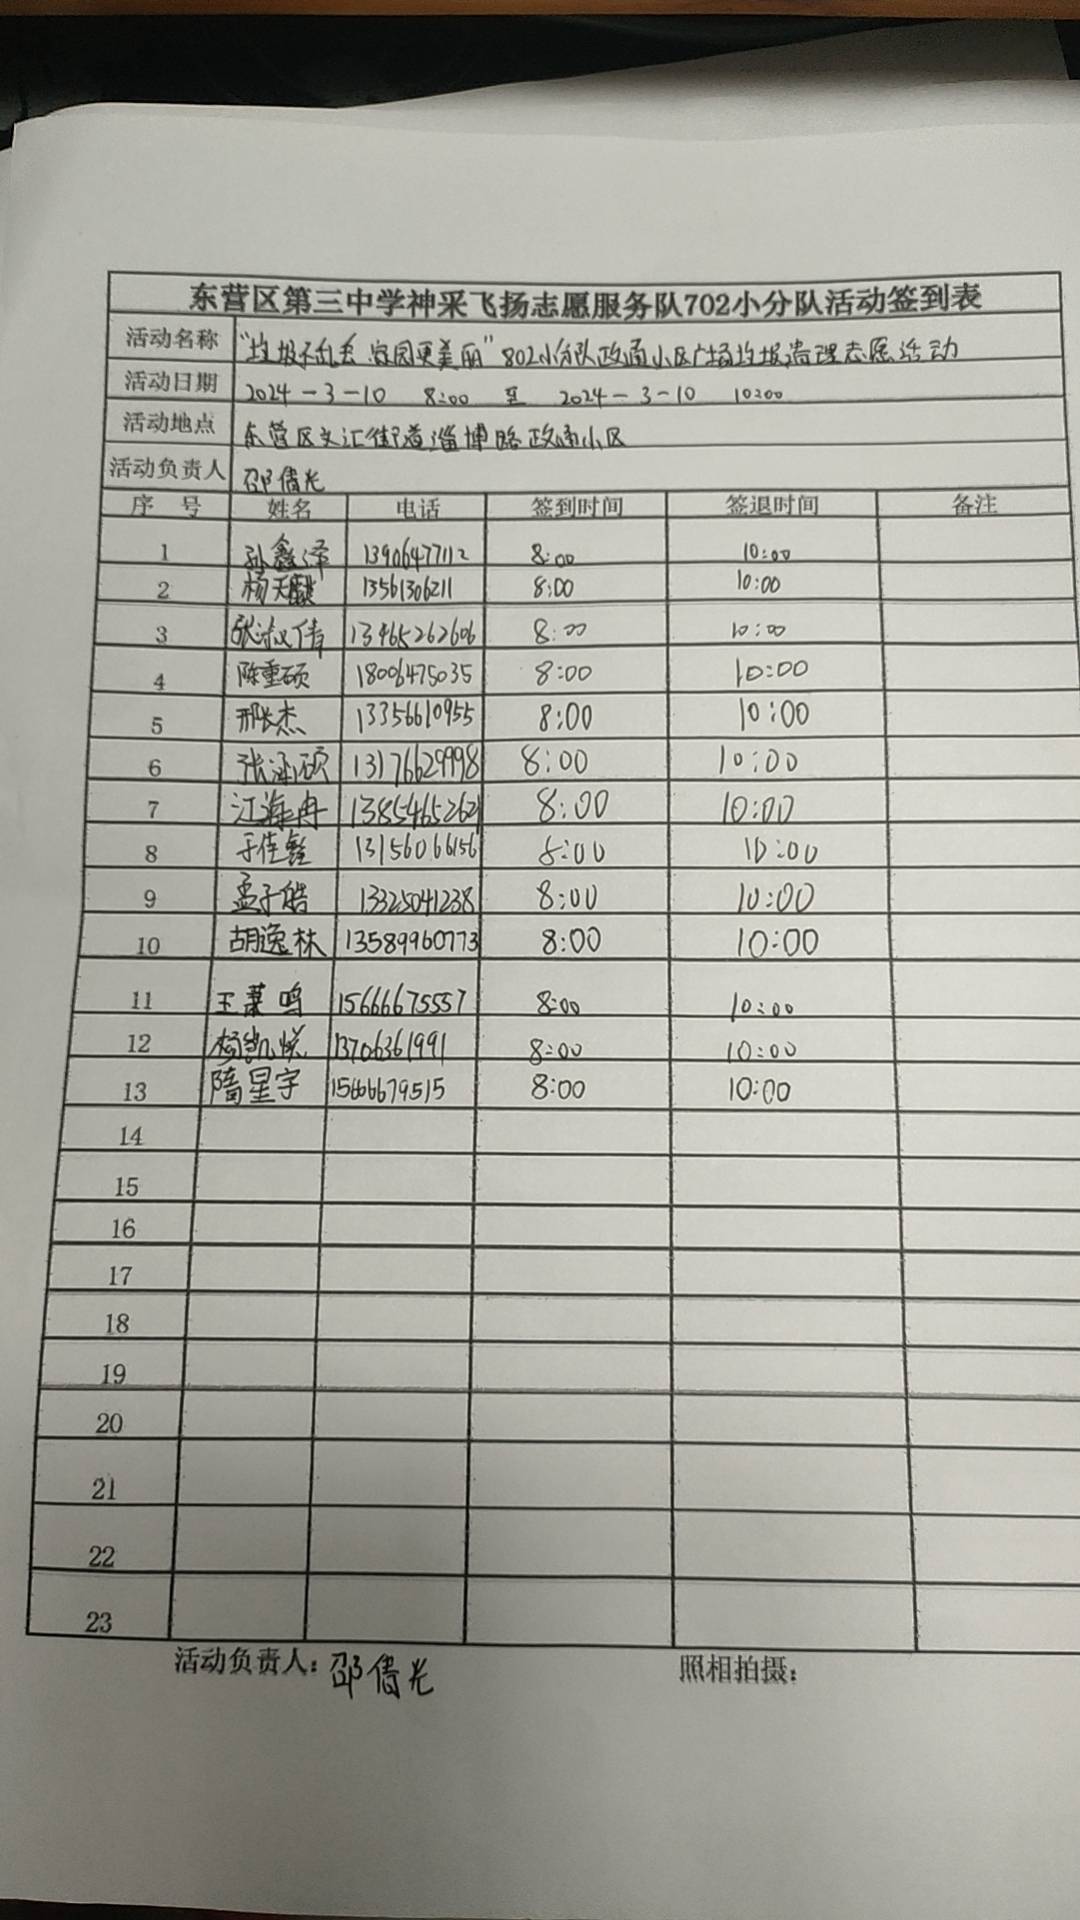 东营区第三中学神采飞扬志愿服务队702小分队活动签到表
活动名称 "垃圾不乱丢 家园更美丽" 802小分队政通小区广场垃圾清理志愿活动
活动日期 2024-3-10 8:00 至 2024-3-10 10:00
活动地点 东营区文汇街道淄博路政通小区
活动负责人 邵倩光
序 号 姓名 电话 签到时间 签退时间 备注
1 孙鑫泽 13906477112 8:00 10:00
2 杨天麒 13561306211 8:00 10:00
3 张淑倩 13465262606 8:00 10:00
4 陈重硕 18006475035 8:00 10:00
5 邢长杰 13356610955 8:00 10:00
6 张涵硕 13176629998 8:00 10:00
7 江海冉 13854652621 8:00 10:00
8 于佳鑫 13156066156 8:00 10:00
9 孟子皓 13325041238 8:00 10:00
10 胡逸林 13589960773 8:00 10:00
11 王萧鸣 15666675557 8:00 10:00
12 杨凯 13706361991 8:00 10:00
13 隋星宇 15666679515 8:00 10:00
14
15
16
17
18
19
20
21
22
23
活动负责人：邵倩光 照相拍摄：